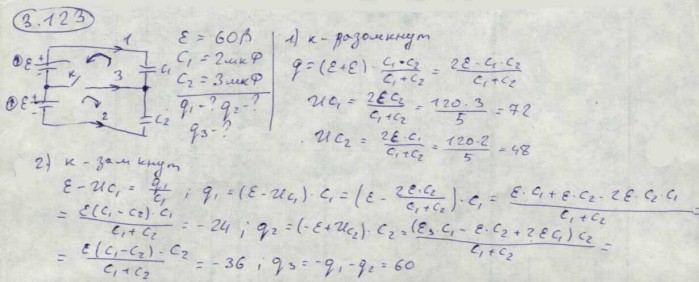 3.123
1
ε
+
-
К
3
C₁
ε
+
-
2
C₂
ε = 60В
C₁ = 2мкФ
C₂ = 3мкФ
q₁-? q₂-?
q₃-?
1) к-разомкнут
q = (ε+ε) · C₁•C₂/(C₁+C₂) = 2ε·C₁·C₂/(C₁+C₂)
UC₁ = 2εC₂/(C₁+C₂) = 120·3/5 = 72
UC₂ = 2ε·C₁/(C₁+C₂) = 120·2/5 = 48
2) к-замкнут
ε-UC₁ = q₁/C₁ ; q₁ = (ε-UC₁)·C₁ = (ε - 2ε·C₂/(C₁+C₂))·C₁ = ε·C₁+ε·C₂-2ε·C₂ C₁/(C₁+C₂) =
= ε(C₁-C₂)·C₁/(C₁+C₂) = -24 ; q₂ = (-ε+UC₂)·C₂ = (ε₃·C₁-ε·C₂+2εC₁)C₂/(C₁+C₂) =
= ε(C₁-C₂)·C₂/(C₁+C₂) = -36 ; q₃ = -q₁-q₂ = 60